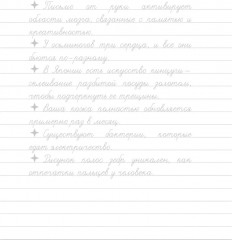 ✦ Письмо от руки активирует
области мозга, связанные с памятью и
креативностью.
✦ У осьминогов три сердца, и все они
бьются по-разному.
✦ В Японии есть искусство кинцуги –
склеивание разбитой посуды золотом,
чтобы подчеркнуть её трещины.
✦ Ваша кожа полностью обновляется
примерно раз в месяц.
✦ Существуют бактерии, которые
едят электричество.
✦ Рисунок полос зебр уникален, как
отпечатки пальцев у человека.